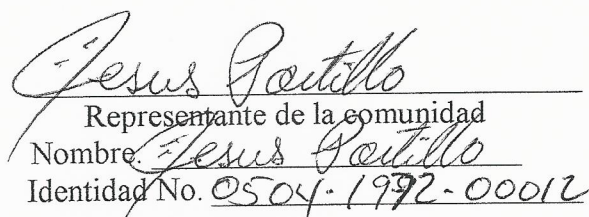 Jesus Portillo
Representante de la comunidad
Nombre. Jesus Portillo
Identidad No. 0504-1972-00012